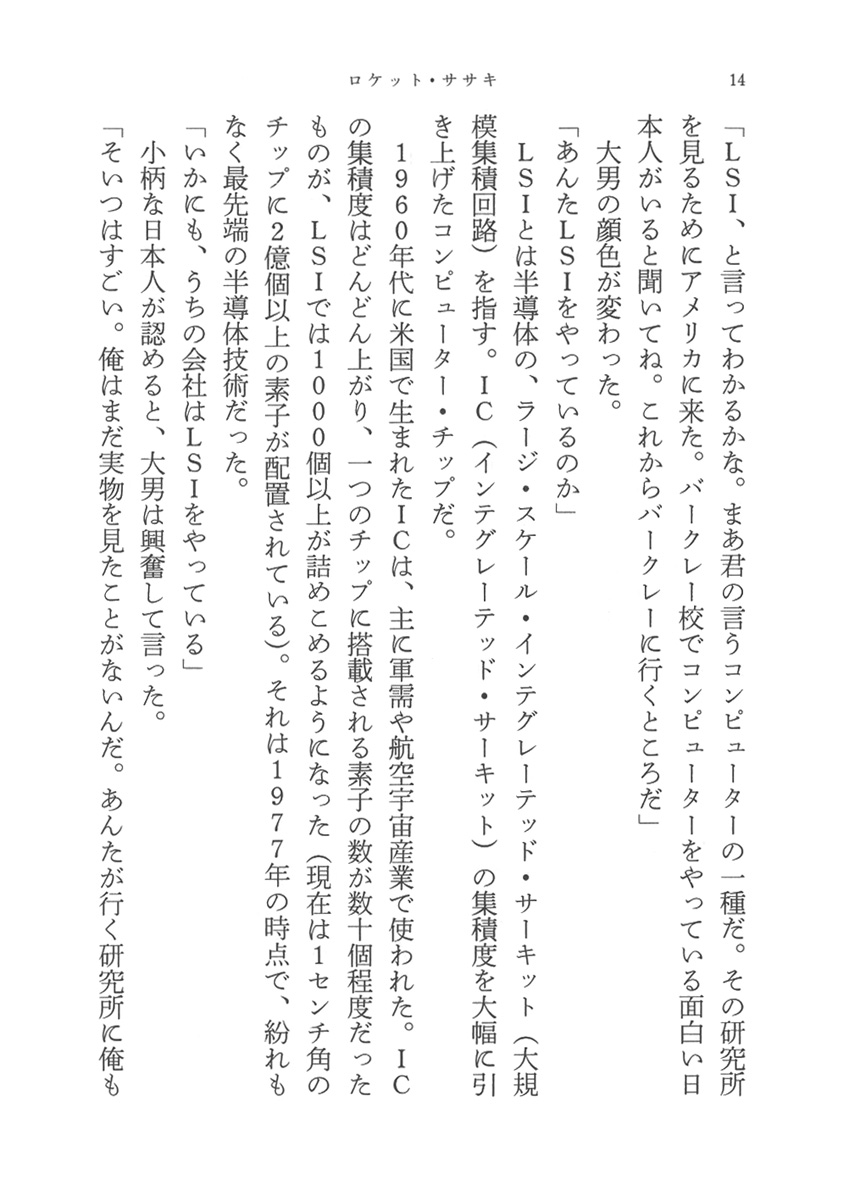 ロケット・ササキ
14
「LSI、と言ってわかるかな。まあ君の言うコンピューターの一種だ。その研究所
を見るためにアメリカに来た。バークレー校でコンピューターをやっている面白い日
本人がいると聞いてね。これからバークレーに行くところだ」
大男の顔色が変わった。
「あんたLSIをやっているのか」
LSIとは半導体の、ラージ・スケール・インテグレーテッド・サーキット（大規
模集積回路）を指す。IC（インテグレーテッド・サーキット）の集積度を大幅に引
き上げたコンピューター・チップだ。
1960年代に米国で生まれたICは、主に軍需や航空宇宙産業で使われた。IC
の集積度はどんどん上がり、一つのチップに搭載される素子の数が数十個程度だった
ものが、LSIでは1000個以上が詰めこめるようになった（現在は1センチ角の
チップに2億個以上の素子が配置されている）。それは1977年の時点で、紛れも
なく最先端の半導体技術だった。
「いかにも、うちの会社はLSIをやっている」
小柄な日本人が認めると、大男は興奮して言った。
「そいつはすごい。俺はまだ実物を見たことがないんだ。あんたが行く研究所に俺も